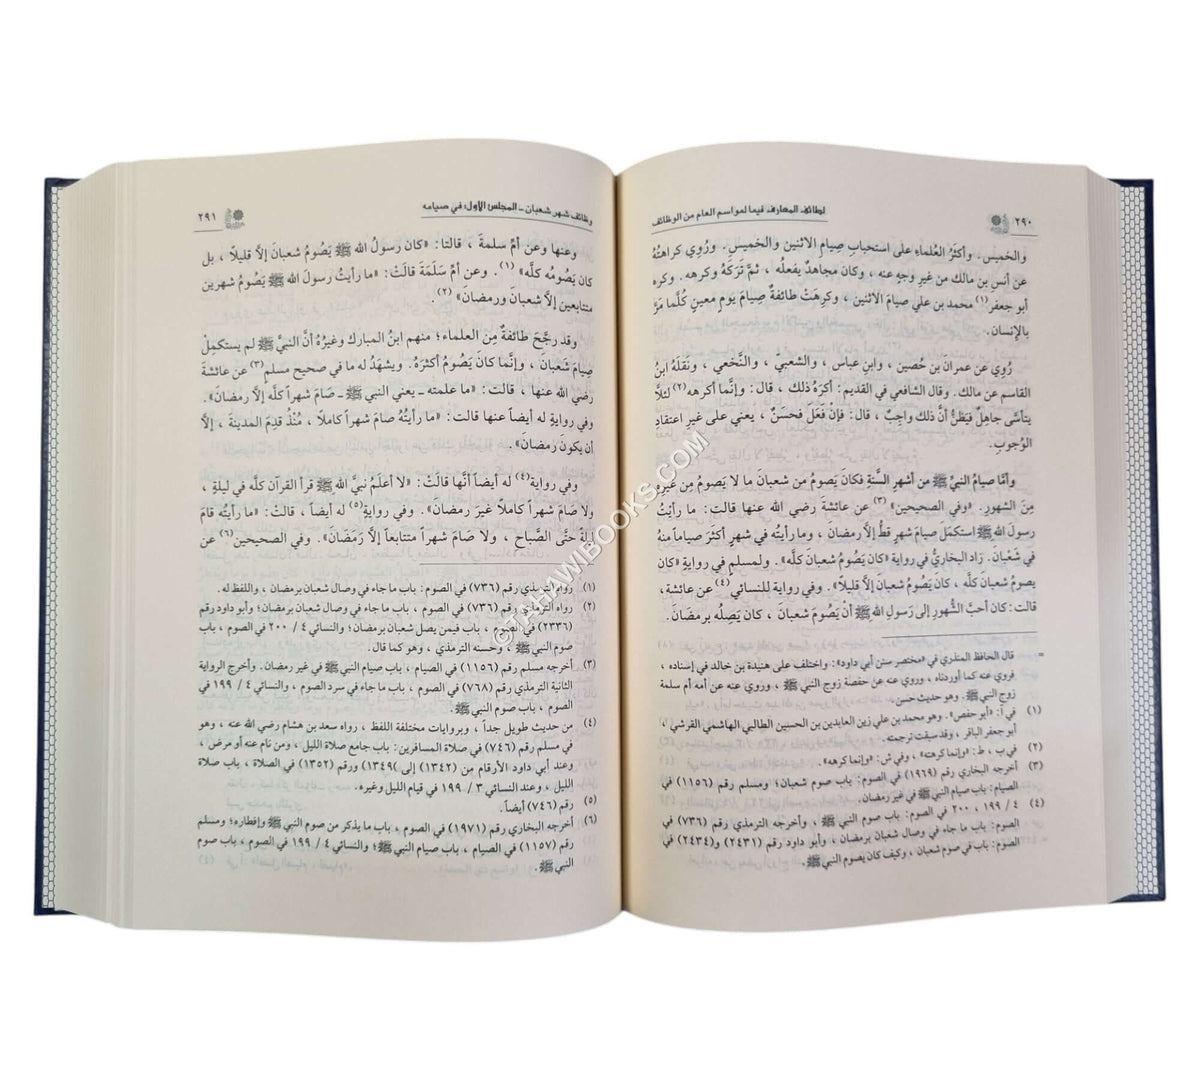 ٢٩٠
لطائف المعارف فيما لمواسم العام من الوظائف
والخميس. وأكثَرُ العُلماءِ على استحبابِ صِيامِ الاثنين والخميسِ. ورُوِي كراهتُهُ
عن أنَسِ بن مالك من غير وجهٍ عنه ، وكان مجاهدٌ يفعلُه ، ثمَّ تَرَكَهُ وكرهه. وكره
أبو جعفر(١) محمد بن علي صيامَ الاثنين ، وكرِهَتْ طائفةٌ صِيامَ يومٍ معينٍ كُلَّما مَرَّ
بالإنسان.
رُوِيَ عن عمرانَ بن حُصين ، وابنِ عباس ، والشعبيِّ ، والنَّخْعي ، ونَقَلَهُ ابنُ
القاسم عن مالك. وقال الشافعي في القديم: أكرَهُ ذلك ، قال: وإنَّما أكرهه(٢) لئلَّا
يتأسَّى جاهِلٌ فيَظنُّ أنَّ ذلك واجِبٌ ، قال: فإنْ فَعَلَ فحسَنٌ ، يعني على غيرِ اعتقادِ
الوُجوبِ.
وأمَّا صيامُ النبيِّ ﷺ من أشهرِ السَّنةِ فكانَ يَصومُ من شعبانَ ما لا يَصومُ من غيرهِ
مِنَ الشهورِ. «وفي الصحيحين» (٣) عن عائشةَ رضي الله عنها قالت: ما رأيتُ
رسولَ اللهِ ﷺ استكمَل صِيامَ شهرٍ قطُّ إلَّا رمضانَ ، وما رأيته في شهرٍ أكثَرَ صِياماً منهُ
في شَعْبانَ. زاد البخاريُّ في رواية «كان يَصُومُ شعبانَ كلَّه». ولمسلم في روايةٍ «كان
يصومُ شعبانَ كلَّه ، كان يَصُومُ شعبانَ إلَّا قليلاً». وفي رواية للنسائي (٤) عن عائشة،
قالت: كان أحبَّ الشُّهورِ إلى رَسولِ اللهِ ﷺ أنْ يَصُومَ شعبانَ ، كان يَصِلُه برمضانَ.
= قال الحافظ المنذري في «مختصر سنن أبي داود»: واختلف على هنيدة بن خالد في إسناده ،
فروي عنه كما أوردناه ، وروي عنه عن حفصة زوج النبي ﷺ ، وروي عنه عن أمه أم سلمة
زوج النبي ﷺ. وهو حديث حسن.
(١) في أ: «أبو حفص». وهو محمد بن علي زين العابدين بن الحسين الطالبي الهاشمي القرشي ،
أبو جعفر الباقر ، وقد سبقت ترجمته.
(٢) في ب ، ط: «وإنما كرهته» ، وفي ش: «وإنما كرهه».
(٣) أخرجه البخاري رقم (١٩٦٩) في الصوم: باب صوم شعبان؛ ومسلم رقم (١١٥٦) في
الصيام: باب صيام النبي ﷺ في غير رمضان.
(٤) ٤ / ١٩٩ ، ٢٠٠ في الصوم: باب صوم النبي ﷺ ، وأخرجه الترمذي رقم (٧٣٦) في
الصوم: باب ما جاء في وصال شعبان برمضان ، وأبو داود رقم (٢٤٣١) و(٢٤٣٤) في
الصوم: باب في صوم شعبان ، وكيف كان يصوم النبي ﷺ.
وظائف شهر شعبان - المجلس الأول: في صيامه
٢٩١
وعنها وعن أمِّ سلمةَ ، قالتا: «كان رسولُ الله ﷺ يَصُومُ شعبانَ إلَّا قليلًا ، بل
كان يَصُومُه كلَّه» (١). وعن أمِّ سَلَمَةَ قالتْ: «ما رأيتُ رسولَ اللهِ ﷺ يَصُومُ شهرين
متتابعينِ إلَّا شعبانَ ورمضانَ» (٢).
وقد رجَّحَ طائفةٌ مِنَ العلماءِ؛ منهم ابنُ المبارك وغيرُهُ أنَّ النبيَّ ﷺ لم يستكمِلْ
صيامَ شَعبانَ ، وإنَّما كانَ يَصُومُ أكثرَهُ. ويشهَدُ له ما في صحيح مسلم(٣) عن عائشةَ
رضي الله عنها ، قالت: «ما علمته - يعني النبي ﷺ - صَامَ شهراً كلَّه إلَّا رمضانَ».
وفي روايةٍ له أيضاً عنها قالت: «ما رأيتُهُ صامَ شهراً كاملًا ، مُنْذُ قدِمَ المدينةَ ، إلَّا
أن يكونَ رمضانَ».
وفي رواية(٤) له أيضاً أنَّها قالتْ: «لا أعلمُ نبيَّ اللهِ ﷺ قرأ القرآن كلَّه في ليلةٍ ،
ولا صَامَ شهراً كاملًا غيرَ رمضان». وفي روايةٍ(٥) له أيضاً ، قالتْ: «ما رأيتُه قامَ
ليلةً حتَّى الصَّباحِ ، ولا صَامَ شهراً متتابعاً إلَّا رَمَضَانَ». وفي الصحيحين(٦) عن
(١) رواه الترمذي رقم (٧٣٦) في الصوم: باب ما جاء في وصال شعبان برمضان ، واللفظ له.
(٢) رواه الترمذي رقم (٧٣٦) في الصوم ، باب ما جاء في وصال شعبان برمضان؛ وأبو داود رقم
(٢٣٣٦) في الصوم ، باب فيمن يصل شعبان برمضان؛ والنسائي ٤ / ٢٠٠ في الصوم ، باب
صوم النبي ﷺ ، وحسنه الترمذي ، وهو كما قال.
(٣) أخرجه مسلم رقم (١١٥٦) في الصيام ، باب صيام النبي ﷺ في غير رمضان. وأخرج الرواية
الثانية الترمذي رقم (٧٦٨) في الصوم ، باب ما جاء في سرد الصوم ، والنسائي ٤ / ١٩٩ في
الصوم ، باب صوم النبي ﷺ.
(٤) من حديث طويل جداً ، وبروايات مختلفة اللفظ ، رواه سعد بن هشام رضي الله عنه ، وهو
في مسلم رقم (٧٤٦) في صلاة المسافرين: باب جامع صلاة الليل ، ومن نام عنه أو مرض ،
وعند أبي داود الأرقام من (١٣٤٢) إلى (١٣٤٩) ورقم (١٣٥٢) في الصلاة ، باب صلاة
الليل ، وعند النسائي ٣ / ١٩٩ في قيام الليل وغيره.
(٥) رقم (٧٤٦) أيضاً.
(٦) أخرجه البخاري رقم (١٩٧١) في الصوم ، باب ما يذكر من صوم النبي ﷺ وإفطاره؛ ومسلم
رقم (١١٥٧) في الصيام ، باب صيام النبي ﷺ؛ والنسائي ٤ / ١٩٩ في الصوم ، باب صوم
النبي ﷺ.
©TAHAWIBOOKS.COM